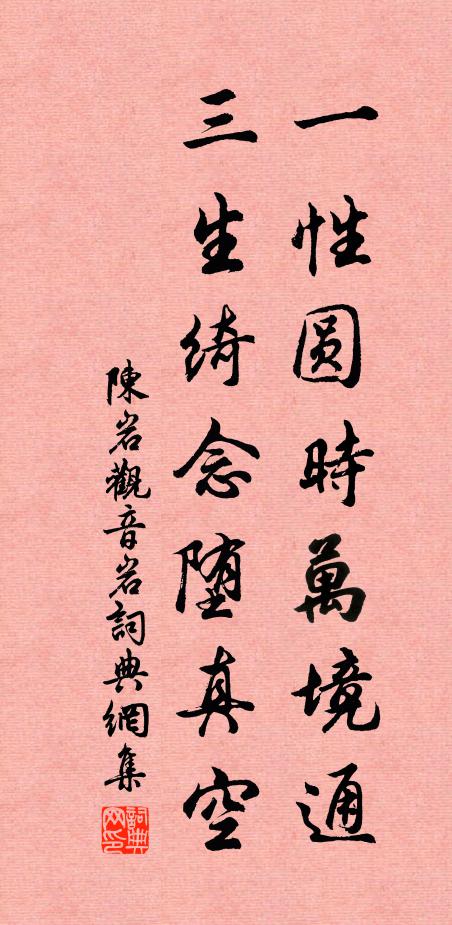 一性圆時萬境通
三生綺念堕真空
陳岩觀音岩詞典網集
詞典网印